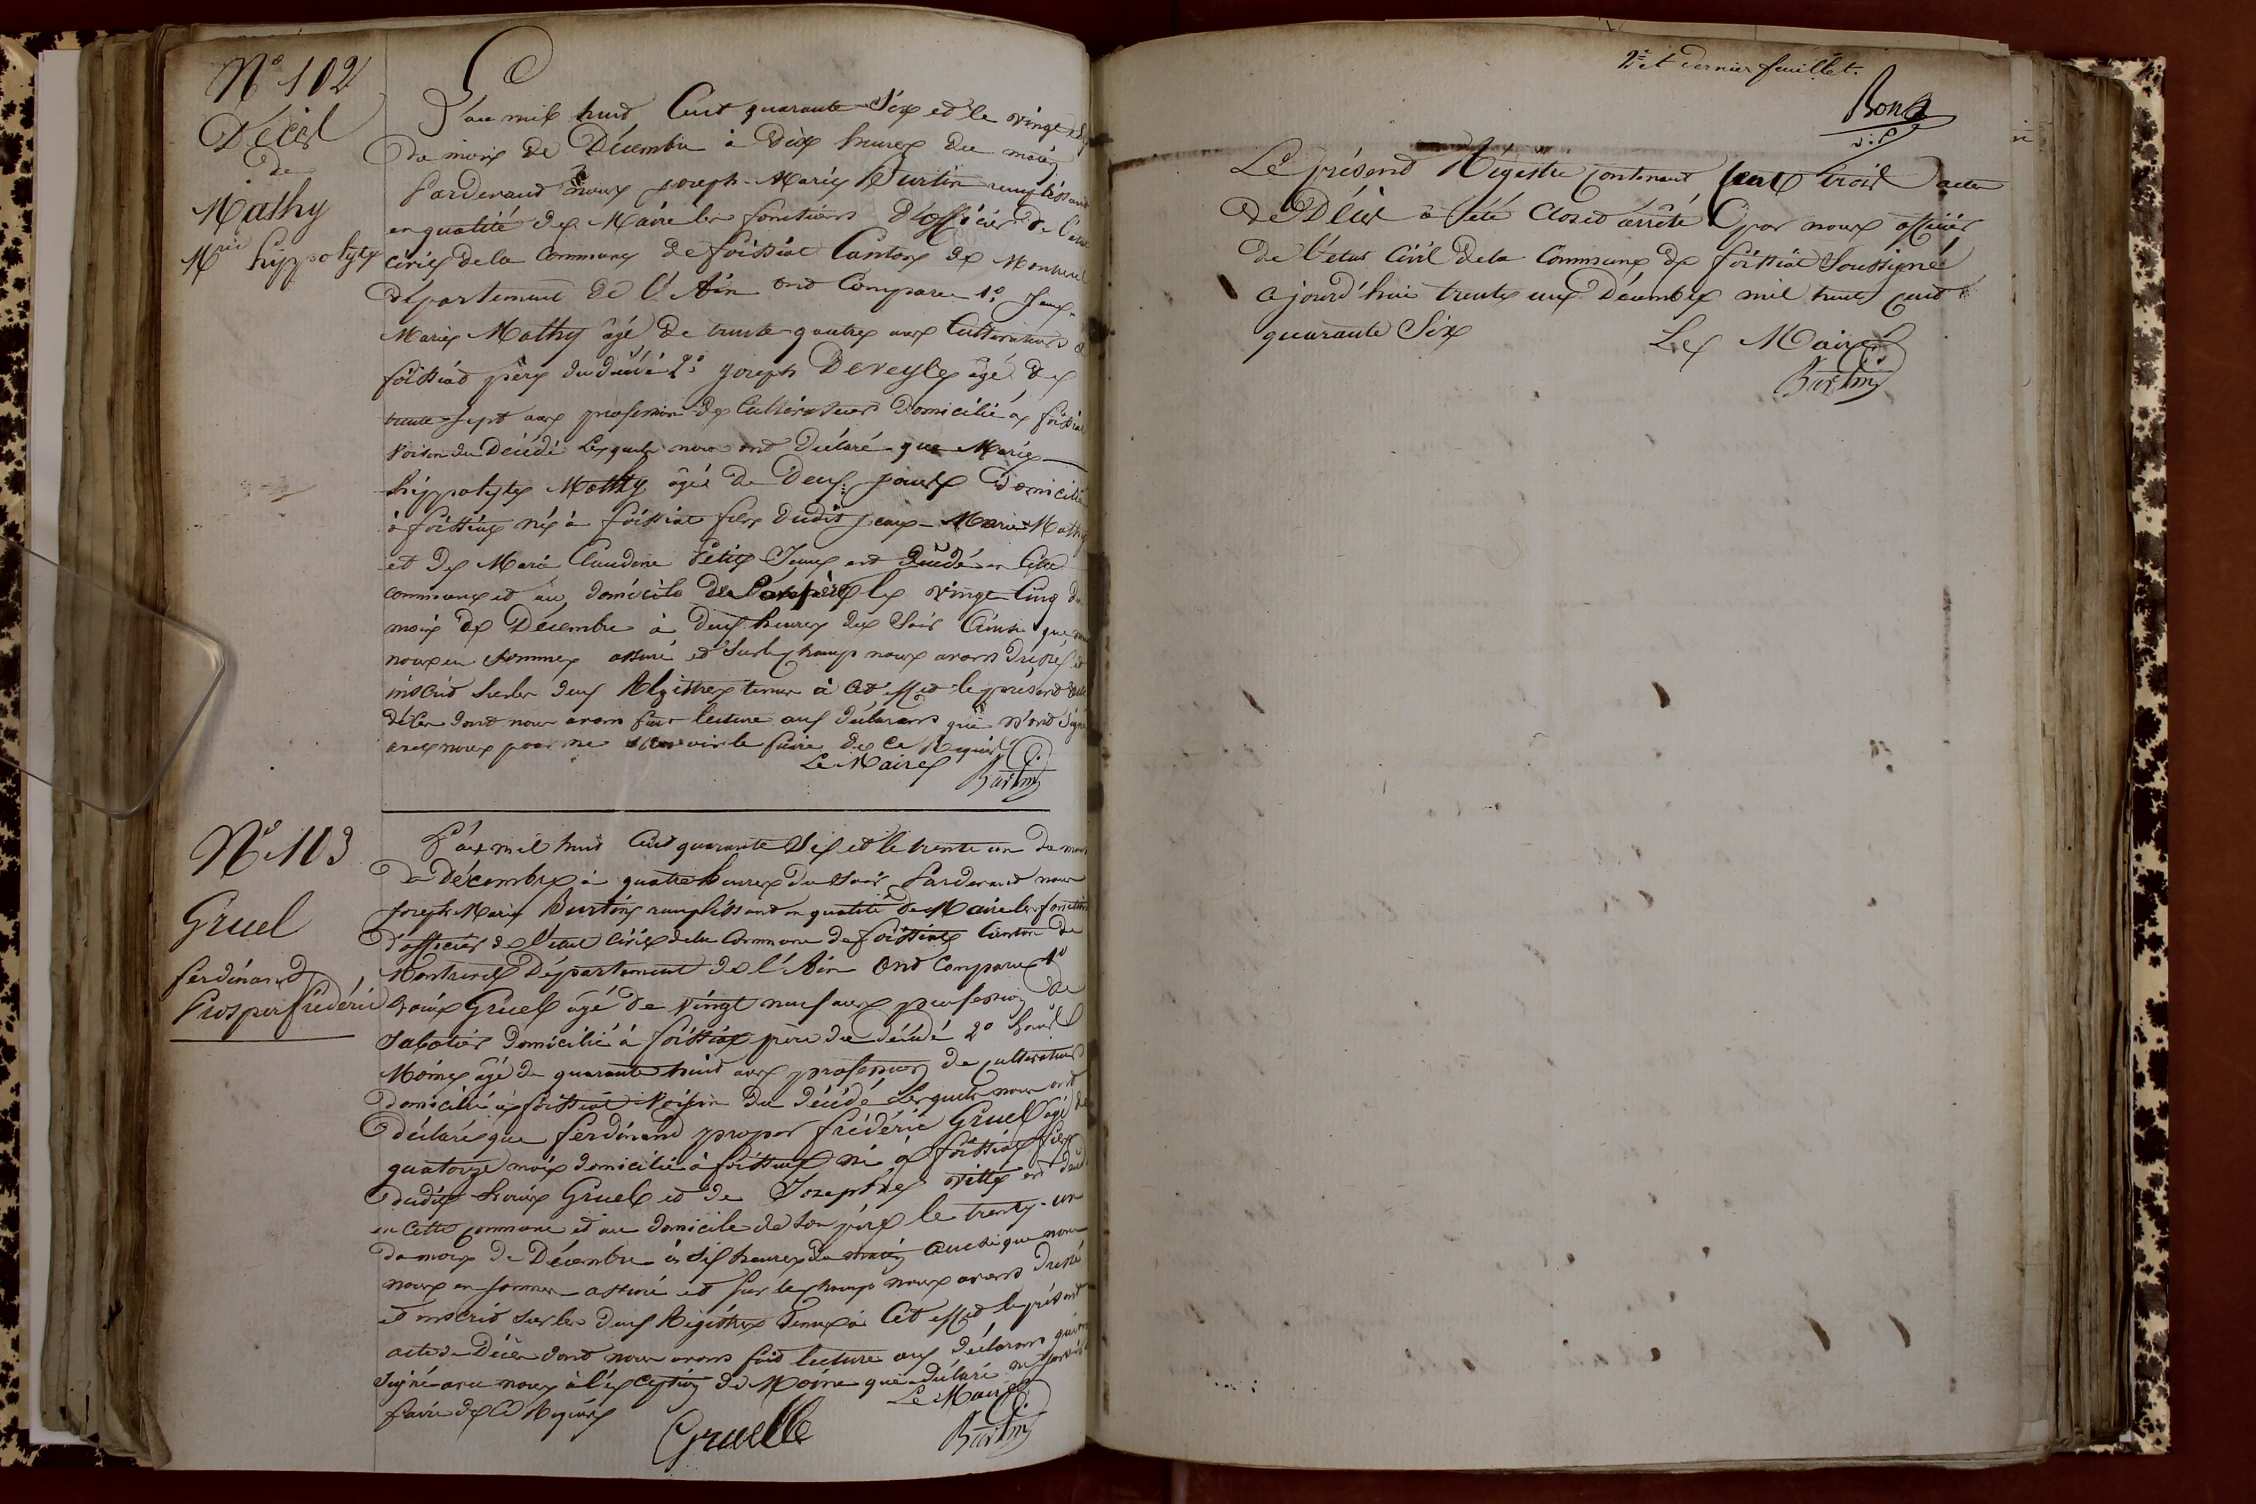 N° 102
Décès
de
Mathy
Mrie hippolyte
L'an mil huit Cent quarante Six et le vingt
Du mois de Décembre à Dix heures du matin
Pardevant nous joseph-Marie Burtin remplissant
en qualité de Maire les fonctions D'officier De l'état
civil de la Commune de foissiat Canton de Montrevel
département de l'Ain ont Comparu 1° Jean-
Marie Mathy âgé de trente-quatre ans Cultivateur à
foissiat père du décédé 2° joseph Deveyle âgé de
trente-sept ans profession de Cultivateur Domicilié à foissiat
voisin du Décédé Lesquels nous ont Déclaré que Marie
hippolyte Mathy âgé de Deux jours Domicilié
à foissiat né à foissiat fils Dudit jean-Marie Mathy
et de Marie Claudine Petit Jean est décédé en Cette
commune et au domicile de Son père le vingt Cinq du
mois de Décembre à deux heures du Soir Ainsi que nous
nous en Sommes assuré et Surlechamp nous avons Dressé et
inscrit Sur les deux Régistres tenus à Cet effet le présent acte
décès dont nous avons fait lecture aux déclarans qui n'ont Signé
avec nous pour ne Savoir le faire de Ce Requis
Le Maire
Burtin
N° 103
Gruel
ferdinand
Prosper frédéric
L'an mil huit Cent quarante Six et le trente un du mois
De Décembre à quatre heures du Soir Pardevant nous
Joseph Marie Burtin remplissant en qualité De Maire les fonctions
D'officier de l'état Civil de la Commune de foissiat Canton De
Montrevel Département de l'Ain Ont Comparu 1°
Louis Gruel âgé de vingt neuf ans profession de
Sabotier domicilié à foissiat père du décédé 2°
Moine âgé de quarante huit ans profession de cultivateur
domicilié à foissiat Voisin du décédé Lesquels nous ont
Déclaré que ferdinand prosper frédéric Gruel âgé de
quatorze mois domicilié à foissiat né à foissiat fils
dudit Louis Gruel et de Josephte est décédé
en Cette commune et au domicile de Son père le trente-un
du mois de Décembre à Six heures du matin Ainsi que nous
nous en sommes assuré et Sur le champ nous avons Dressé
et inscrit Sur les deux Régistres Tenus à Cet effet le présent
acte de Décès dont nous avons fait lecture aux déclarans qui ont
Signé avec nous à l'exception de Moine qui a déclaré ne Savoir
faire de Ce Requis
Le Maire
Gruelle
Burtin
2e et dernier feuillet.
Bon
Le présent Régistre contenant Cent trois actes
De Décès a été Clos et arrêté par nous officier
De l'état Civil de la Commune de foissiat Soussigné
Cejourd'hui trente un Décembre mil huit cent
quarante Six
Le Maire
Burtin